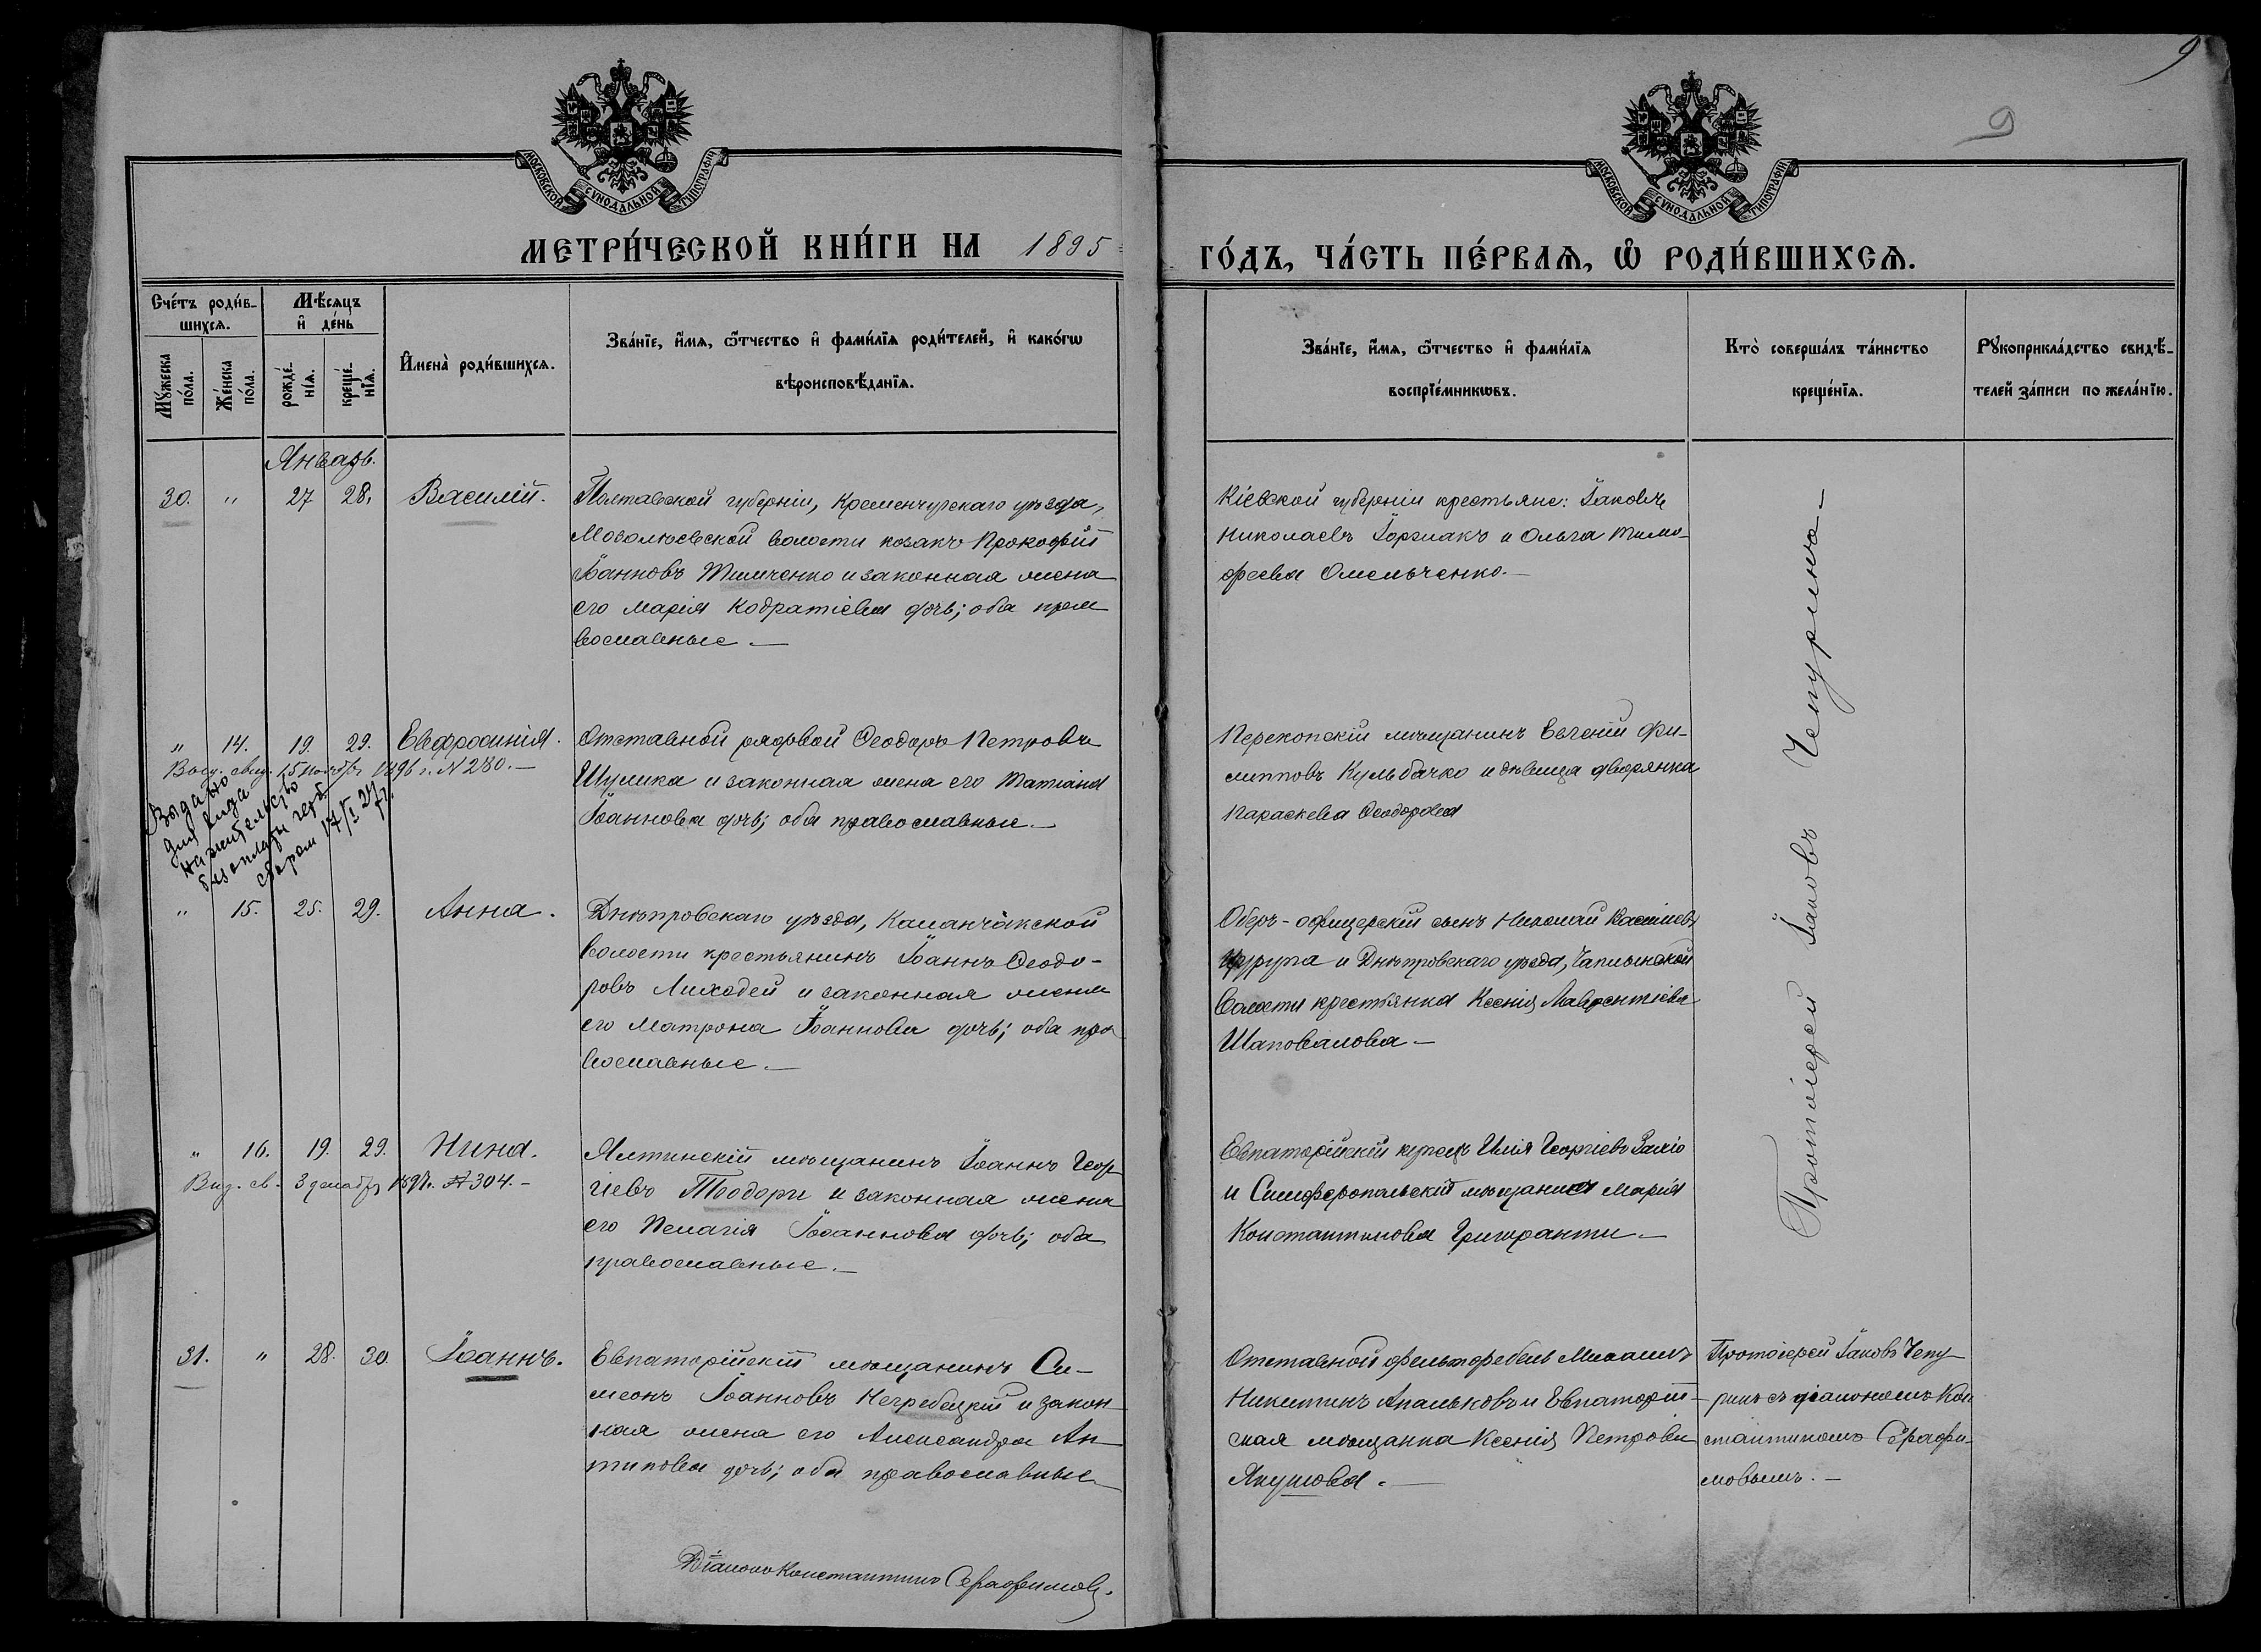 9
9
МОСКОВСКОЙ СѴНОДАЛЬНОЙ ТИПОГРАФІИ
МОСКОВСКОЙ СѴНОДАЛЬНОЙ ТИПОГРАФІИ
МЕТРИ́ЧЕСКОЙ КНИ́ГИ НА 1895
ГО́ДЪ, ЧА́СТЬ ПЕ́РВАѦ, Ѡ РОДИ́ВШИХСѦ.
Сче́тъ роди́в-
шихсѧ.
Му́жеска
по́ла.
Же́нска
по́ла.
Мѣ́сяцъ
и҆ де́нь
рожде́-
нїѧ.
креще́-
нїѧ.
И҆мена̀ роди́вшихсѧ.
Зва́нїе, и҆́мѧ, ѻ҆́тчество и҆ фами́лїѧ роди́телей, и҆ како́гѡ
вѣроисповѣ́данїѧ.
Зва́нїе, и҆́мѧ, ѻ҆́тчество и҆ фами́лїѧ
воспрїе́мникѡвъ.
Кто̀ соверша́лъ та́инство
креще́нїѧ.
Рꙋкоприкла́дство свидѣ́-
телей за́писи по жела́нїю.
Январь.
30. " 27 28. Василій.
Полтавской губерніи, Кременчугскаго уѣзда,
волости козакъ Прокофій
Іоанновъ Тимченко и законная жена
его Марія Кодратіева дочь; оба пра
вославные.—
Кіевской губерніи крестьяне: Іаковъ
Николаевъ и Ольга Тимо-
феева Омельченко.—
" 14. 19. 29. Евфросинія.
Выд. свид. 15 ноября 1896 г. N 280.—
Выдано
для вида
на жительство
без оплаты герб.
сбором 17/I 27 г.
Отставной рядовой Ѳеодоръ Петровъ
Шулика и законная жена его Татіана
Іоаннова дочь; оба православные.—
Перекопскій мѣщанинъ Евгеній Фи-
липповъ Кульбачко и дѣвица дворянка
Параскева Ѳеодорова
" 15. 25. 29. Анна.
Днѣпровскаго уѣзда, Каланчакской
волости крестьянинъ Іоаннъ Ѳеодо-
ровъ Лиходей и законная жена
его Матрона Іоаннова дочь; оба пра
вославные.—
Оберъ-офицерскій сынъ Николай
и Днѣпровскаго уѣзда, Чаплынской
волости крестьянка Ксенія Лаврентіева
Шаповалова—
" 16. 19. 29. Нина.
Выд. св. 3 декабря 1897г. N 304.—
Ялтинскій мѣщанинъ Іоаннъ Геор
гіевъ Теодори и законная жена
его Пелагія Іоаннова дочь; оба
православные.—
Евпаторійскій купецъ Илія Георгіевъ
и Симферопольская мѣщанка Марія
Константинова—
Протоіерей Іаковъ Чепуринъ—
31. " 28. 30. Іоаннъ.
Евпаторійскій мѣщанинъ Си-
меонъ Іоанновъ Негребецкій и закон
ная жена его Александра Ан
типова дочь; оба православные
Отставной фельдфебель Михаилъ
Никитинъ Апальковъ и Евпаторій-
ская мѣщанка Ксенія Петрова
Якушова.—
Протоіерей Іаковъ Чепу-
ринъ съ діакономъ Кон
стантиномъ Серафи-
мовымъ.—
Діаконъ Константинъ Серафимовъ.